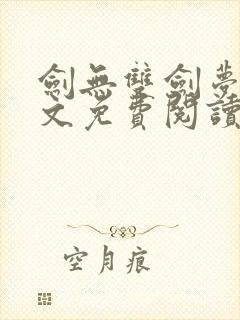 劍無雙劍夢
文免費閱讀
空月痕